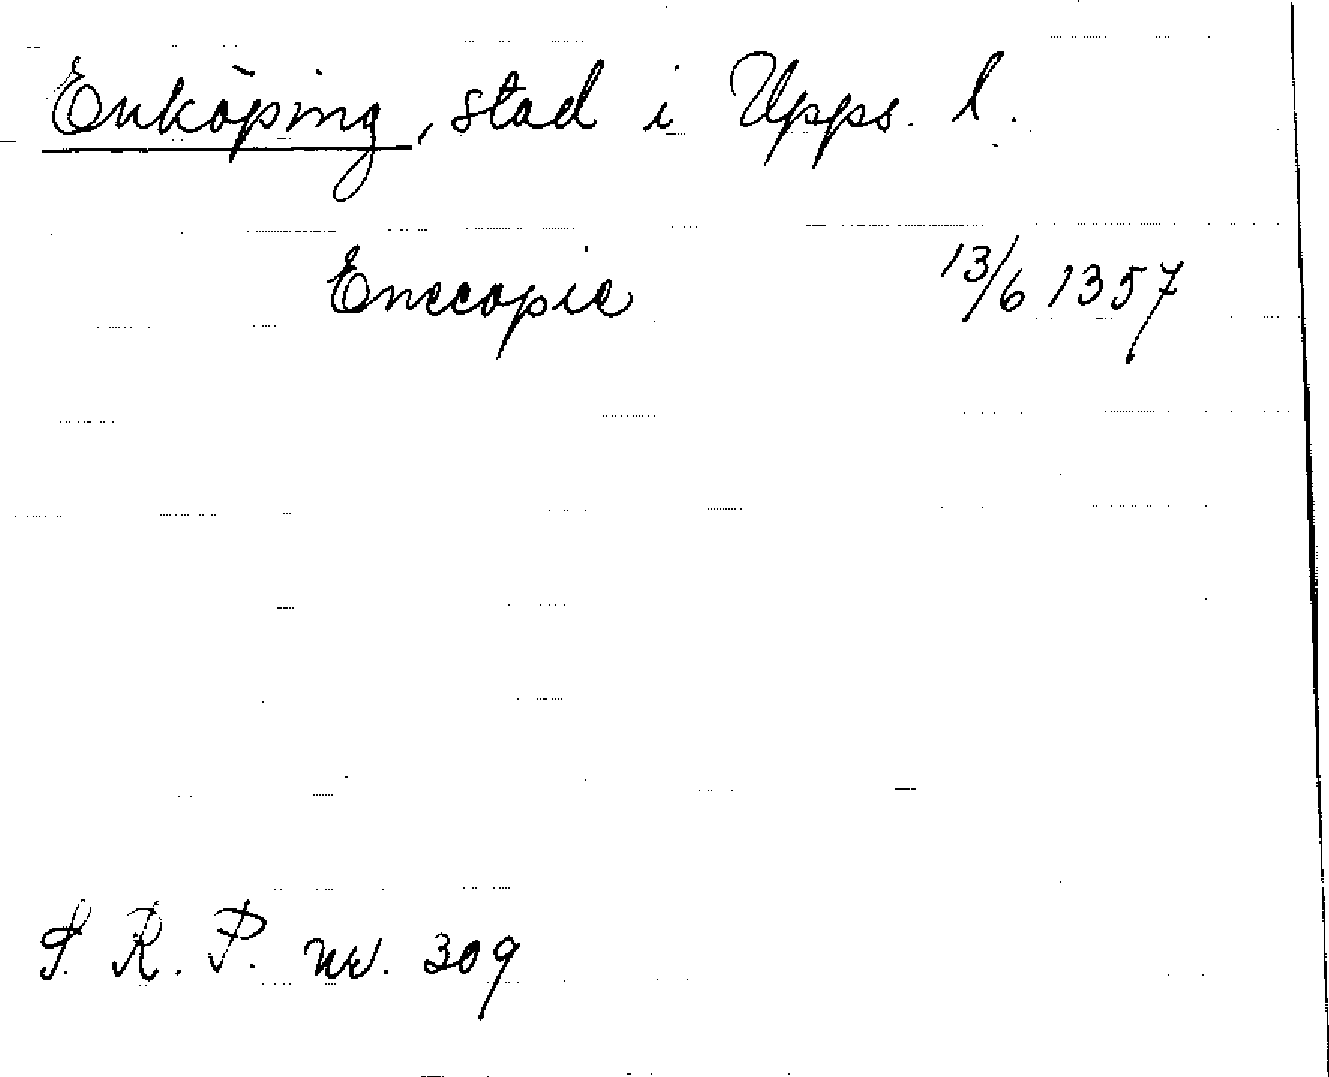 Enköping, stad i Upps. l.
Enecopie 13/6 1357
S. R. P. nr. 309